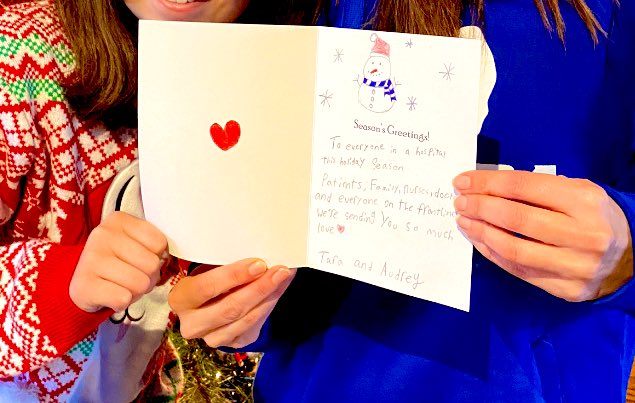 Season's Greetings!
To everyone in a hospital
this holiday season.
Patients, Family, nurses, docs
and everyone on the frontline
we're sending you so much
love
Tara and Audrey